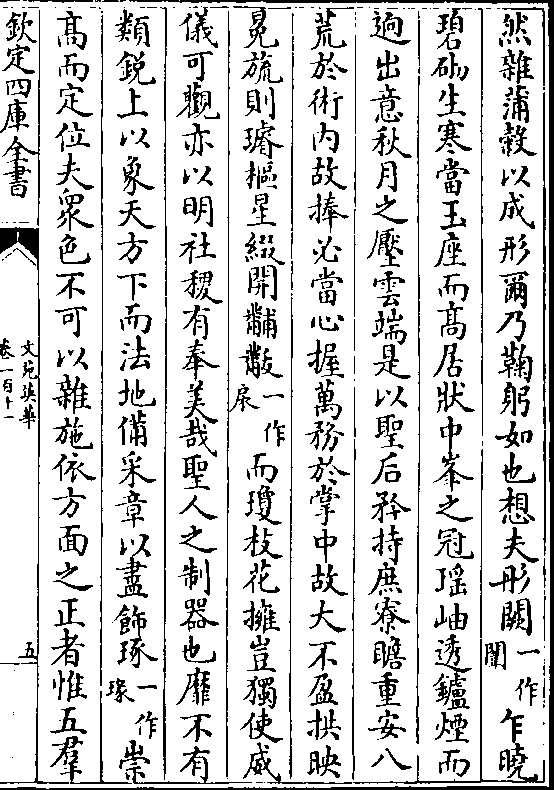 然雜蒲穀以成形爾乃鞠躬如也想夫彤闕一作闈乍曉
碧砌生寒當玉座而髙居狀中峯之冠瑶岫透鑪煙而
逈出意秋月之壓雲端是以聖后矜持庶寮瞻重安八
荒於術内故捧必當心握萬務於掌中故大不盈拱映
冕旒則璿樞星綴開黼黻一作扆而瓊枝花擁豈獨使威
儀可觀亦以明社稷有奉美哉聖人之制器也靡不有
類鋭上以象天方下而法地備采章以盡飾琢一作瑑崇
髙而定位夫衆色不可以雜施依方面之正者惟五羣
欽定四庫全書
文苑英華
卷一百十一
五